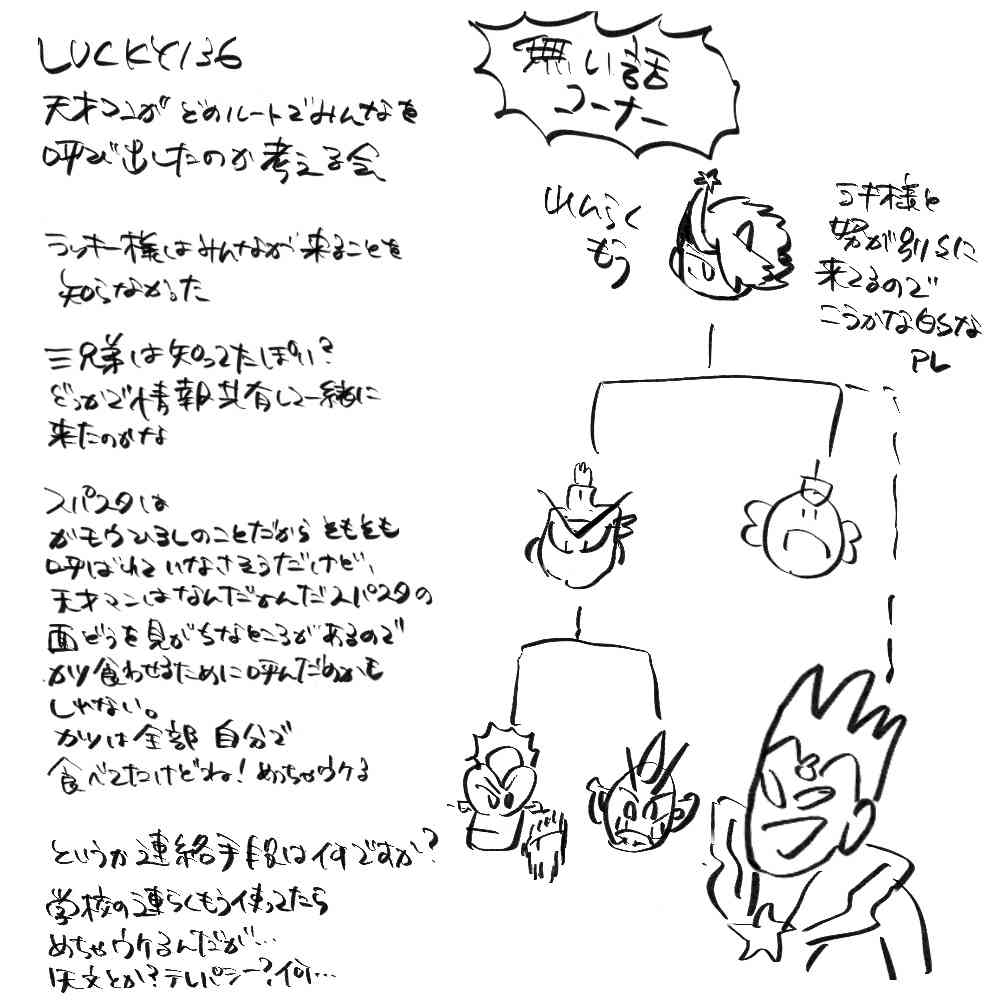 LUCKY136
天才マンがどのルートでみんなを
呼び出したのか考える会
ラッキー様はみんなが来ることを
知らなかった
三兄弟は知ってたぽい?
どっかで情報共有して一緒に
来たのかな
スパスタは
ガモウひろしのことだからそもそも
呼ばれていなさそうだけど、
天才マンはなんだかんだスパスタの
面どうを見がちなところがあるので
カツ食わせるために呼んだのかも
しれない。
カツは全部自分で
食べてたけどね!めっちゃウケる
というか連絡手段は何ですか?
学校の連らくもう使ってたら
めちゃウケるんだが…
天文とか?テレパシー?何…
無い話
コーナー
れんらく
もう
ラキ様と
努が別々に
来てるので
こうかな的な
PL